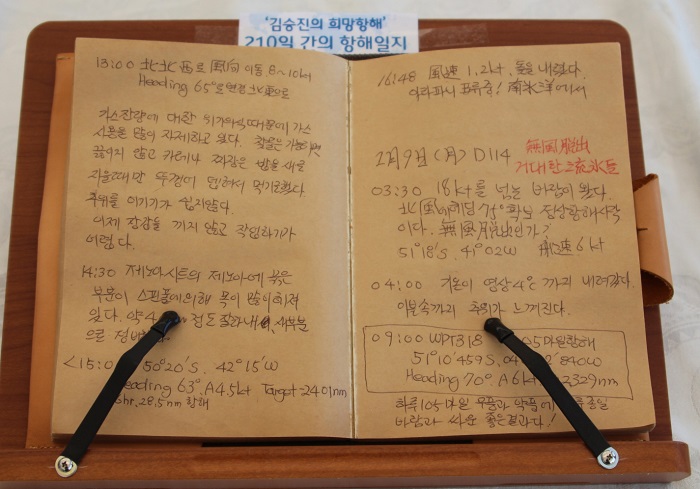 '김승진의 희망항해'
210일 간의 항해일지
13:00 北北西로 風向 이동 8~10kt
Heading 65°로 변경 北東으로
가스잔량에 대한 위기의식 때문에 가스
사용을 많이 자제하고 있다. 찾물은 가능하면
끓이지 않고 카레나 짜장은 밥을 새로
지을때만 뚜껑에 덥혀서 먹기로했다.
추위를 이기기가 쉽지않다.
이제 장갑을 끼지 않고 작업하기가
어렵다.
14:30 제노아시트의 제노아에 묶은
부분이 스핀폴에 의해 많이 헤져
있다. 약 4 정도 잘라내 새부분
으로 정비
<15:0 50°20'S. 42°15'W
eading 63°. A4.5kt Target-2401nm
28.5nm 항해
16:48 風速 1,2kt. 돛을 내렸다.
이라파니 표류중! 南氷洋에서
2月9日(月) D114
無風脫出
거대한 流氷들
03:30 18kt를 넘는 바람이 왔다.
北風에 헤딩 75° 확보 정상항해 시작
이다. 無風脫出인가?
51°18'S. 41°02W 船速 6kt
04:00 기온이 영상 4℃ 까지 내려갔다.
이불속까지 추위가 느껴진다.
09:00 WPT318 A5마일항해
51°10'459S. 04 2'840W
Heading 70° A6kt 2329nm
하루 105마일 무풍과 악풍에 종일
바람과 싸운 좋은결과다!